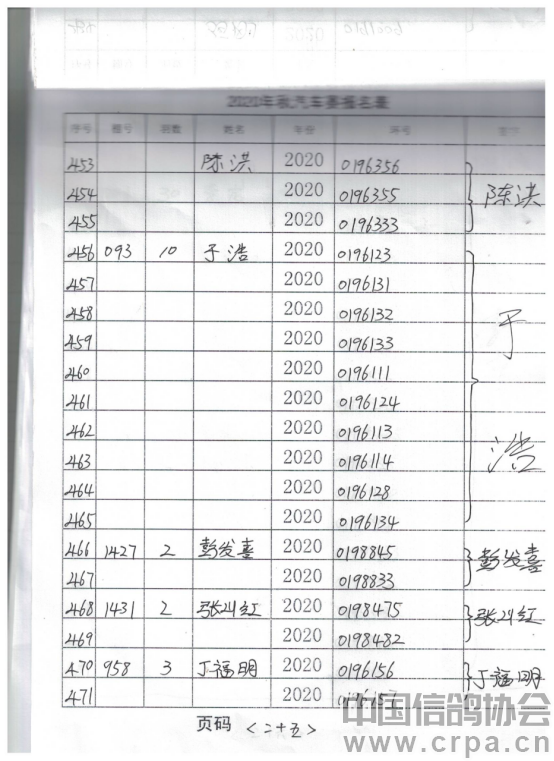 2020年秋汽车赛报名表
序号 棚号 羽数 姓名 年份 环号 签字
453 陈洪 2020 0196356 陈洪
454 2020 0196355
455 2020 0196333
456 093 10 于浩 2020 0196123 于浩
457 2020 0196131
458 2020 0196132
459 2020 0196133
460 2020 0196111
461 2020 0196124
462 2020 0196113
463 2020 0196114
464 2020 0196128
465 2020 0196134
466 1427 2 彭发喜 2020 0198845 彭发喜
467 2020 0198833
468 1431 2 张川红 2020 0198475 张川红
469 2020 0198482
470 958 3 丁福明 2020 0196156 丁福明
471 2020 0196157
页码 <二十五>
中国信鸽协会
www.crpa.cn